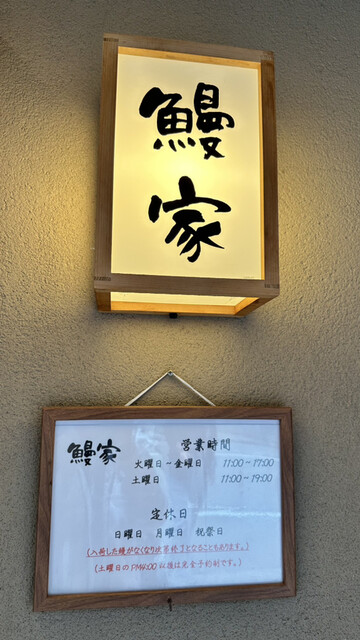 鰻
家
鰻家
営業時間
火曜日－金曜日 11:00~17:00
土曜日 11:00~19:00
定休日
日曜日 月曜日 祝祭日
(入荷した鰻がなくなり次第終了となることもあります。)
(土曜日のPM4:00以後は完全予約制です。)